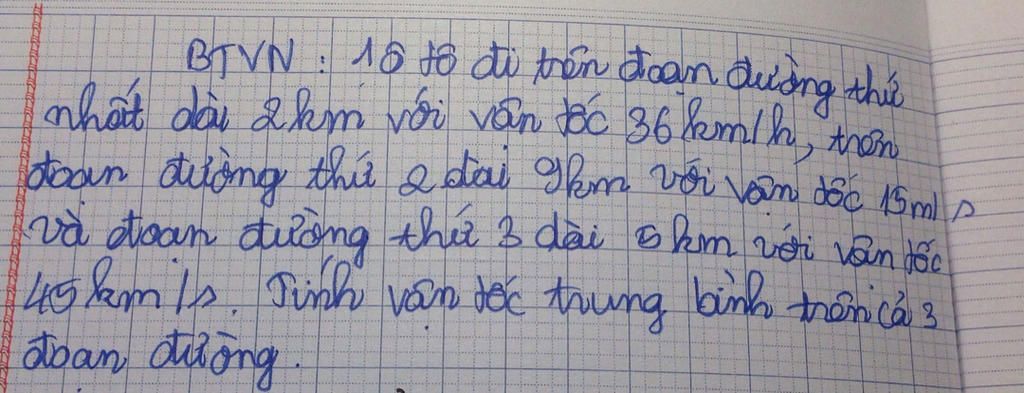 BTVN : 1 ô tô đi trên đoạn đường thứ
nhất dài 2km với vận tốc 36 km/h, trên
đoạn đường thứ 2 dài 9km với vận tốc 15m/s
và đoạn đường thứ 3 dài 5 km với vận tốc
45 km/s. Tính vận tốc trung bình trên cả 3
đoạn đường.